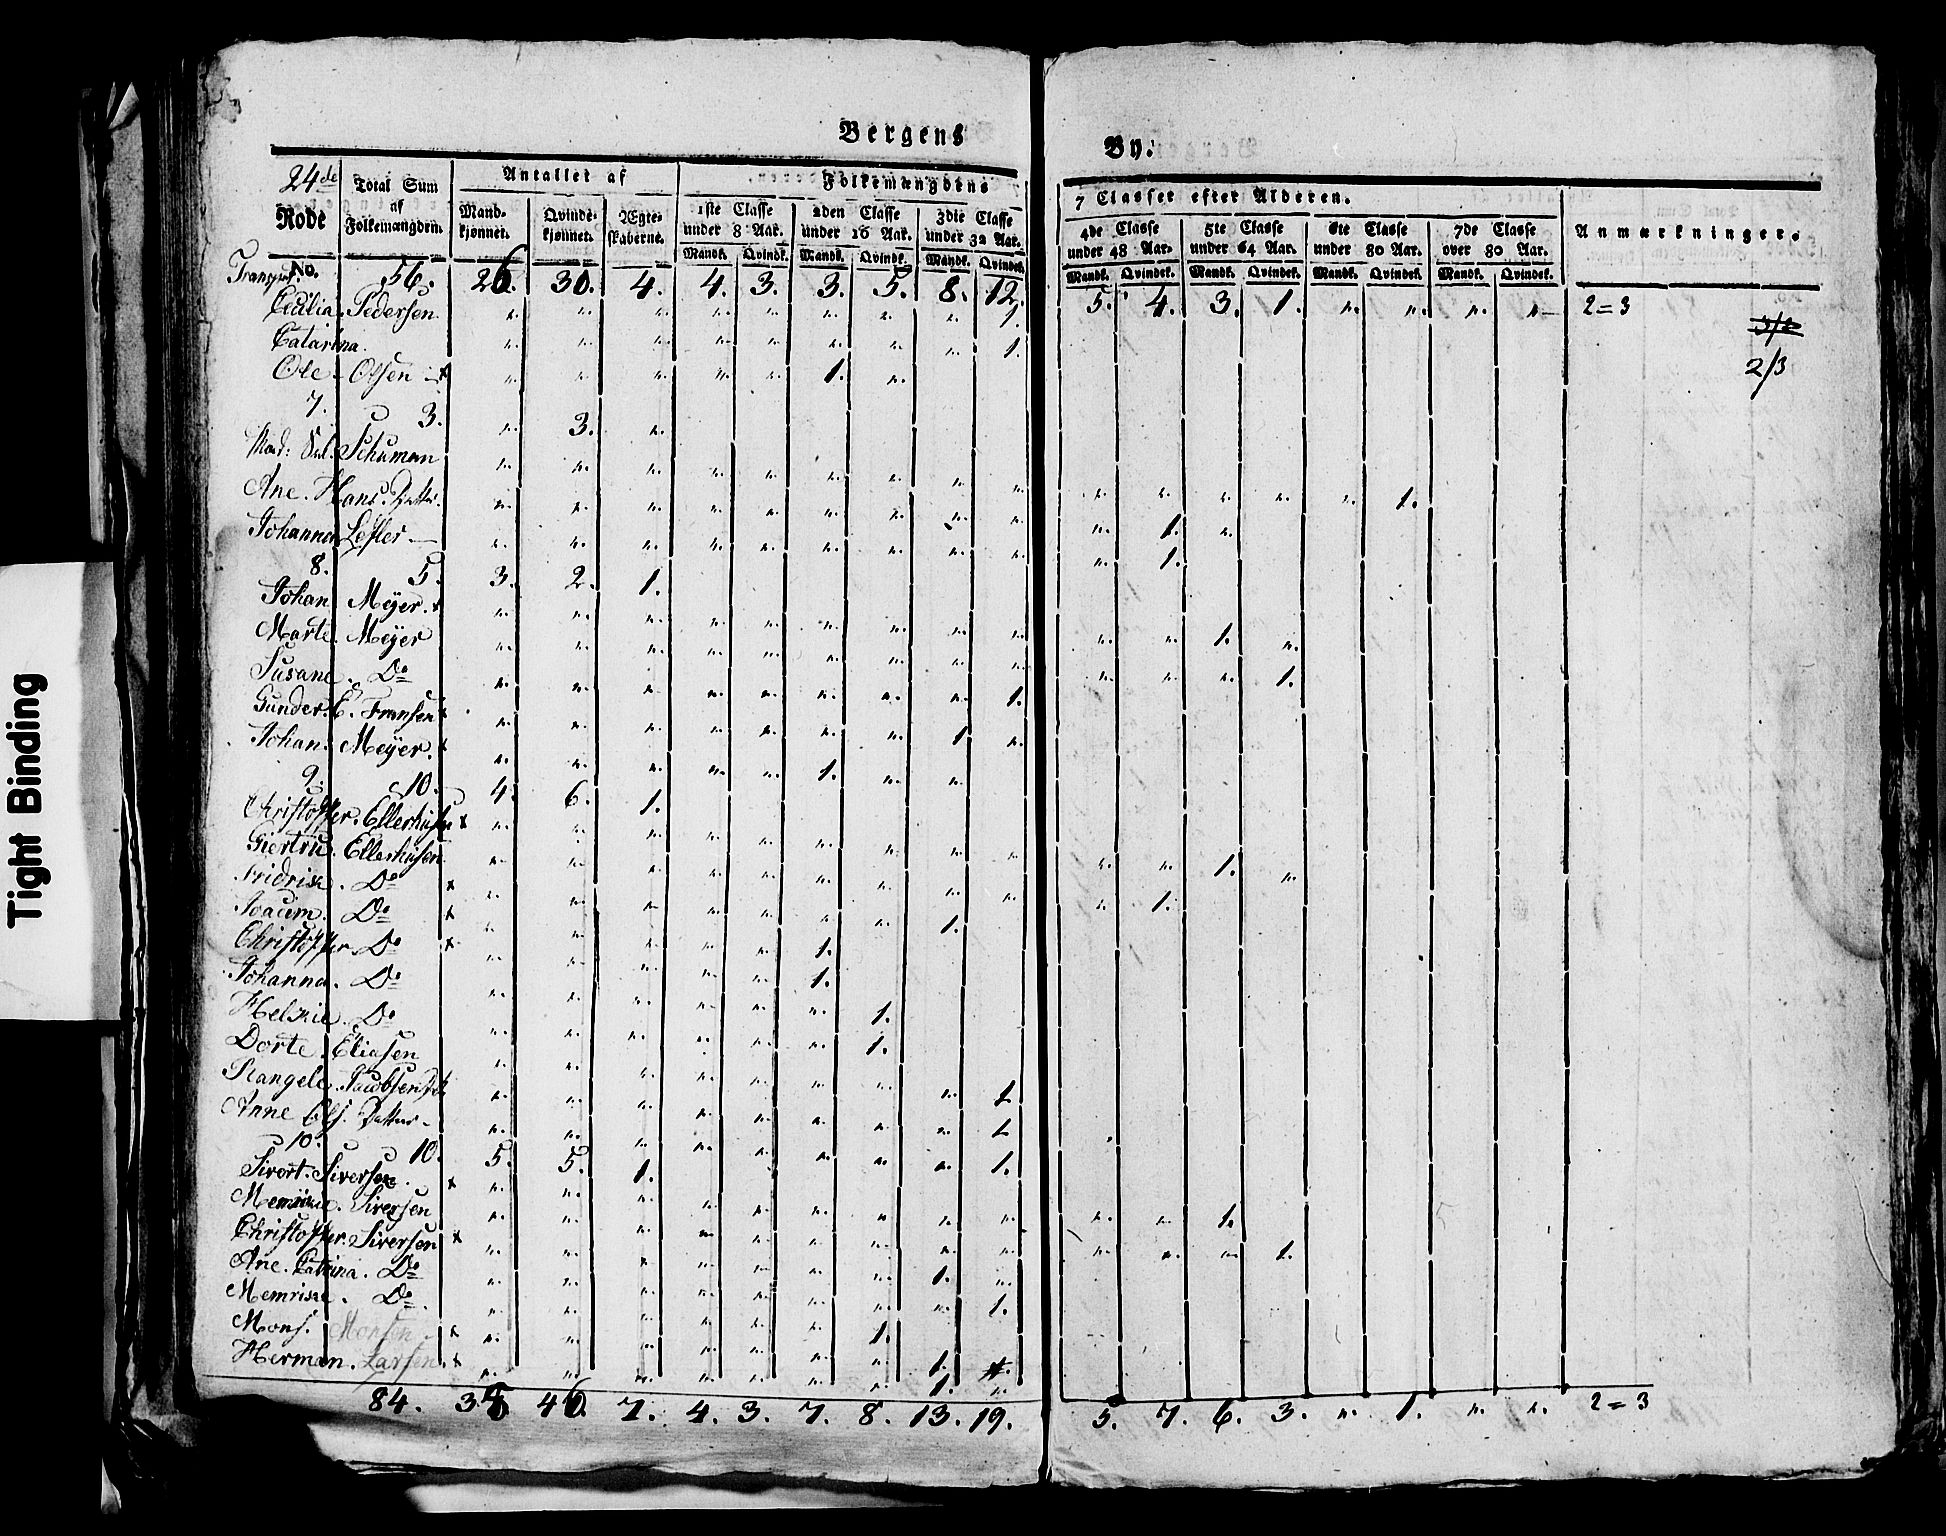 Bergens By.
24de Rode No.
Total Sum af Folkemængden.
Antallet af
Mandkjønnet. Qvindekjønnet. Ægteskaberne.
Folkemængdens 7 Classer efter Alderen.
1ste Classe under 8 Aar. 2den Classe under 16 Aar. 3die Classe under 32 Aar. 4de Classe under 48 Aar. 5te Classe under 64 Aar. 6te Classe under 80 Aar. 7de Classe over 80 Aar. Anmærkninger.
Mandk. Qvindek. Mandk. Qvindk. Mandk. Qvindek. Mandk. Qvindek. Mandk. Qvindek. Mandk. Qvindek. Mandk. Qvindek.
Transport. 56. 26. 30. 4. 4. 3. 3. 5. 8. 12. 5. 4. 3. 1. " " " " 2=3
Cecilia Pedersen " " " " " " " " 1. 3/2
Catarina. " " " " " " " " 1. 2/3
Ole Olsen x " " " " " 1. "
7. 3. " 3. "
Mad: Sal. Schuman " " " " " " " " " " " " " " 1.
Ane. Hans. Datter. " " " " " " " " " " 1. "
Johanna Lesler " " " " " " " " " " 1.
8. 5. 3. 2. 1.
Johan Meyer. x " " " " " " " " " " " 1. "
Marte Meyer " " " " " " " " " " " " 1.
Susane. Do " " " " " " " " 1.
Gunder. E. Fransen x " " " " " " " 1 "
Johan. Meyer. x " " " " " 1. " "
9. 10. 4. 6. 1.
Christoffer. Ellerhusen x " " " " " " " " " " " 1. "
Giertru. Ellerhusen " " " " " " " " " " 1.
Fridrisk. Do x " " " " " " " 1.
Joacim. Do x " " " " " 1.
Christoffer Do x " " " " " 1.
Johanna. Do " " " " " " 1.
Helmie. Do " " " " " " 1.
Dorte. Eliasen " " " " " " " " 1
Rangele. Jacobsen Dt " " " " " " " " 1
Anne Ols. Datter " " " " " " " " 1.
10. 10. 5. 5. 1.
Sivort. Siversen. x " " " " " " " " " " " 1.
Siversen " " " " " " " " " " " " 1.
Christoffer. Siversen x " " " " " " " 1. "
Ane. Catrina. Do " " " " " " " " 1.
Memriske. Do " " " " " " 1.
Mons. Monsen x " " " " " " " 1.
Herman. Larsen. x " " " " " " " 1. "
84. 38 46. 7. 4. 3. 7. 8. 13. 19. 5. 7. 6. 3. " 1. " " 2=3
Tight Binding